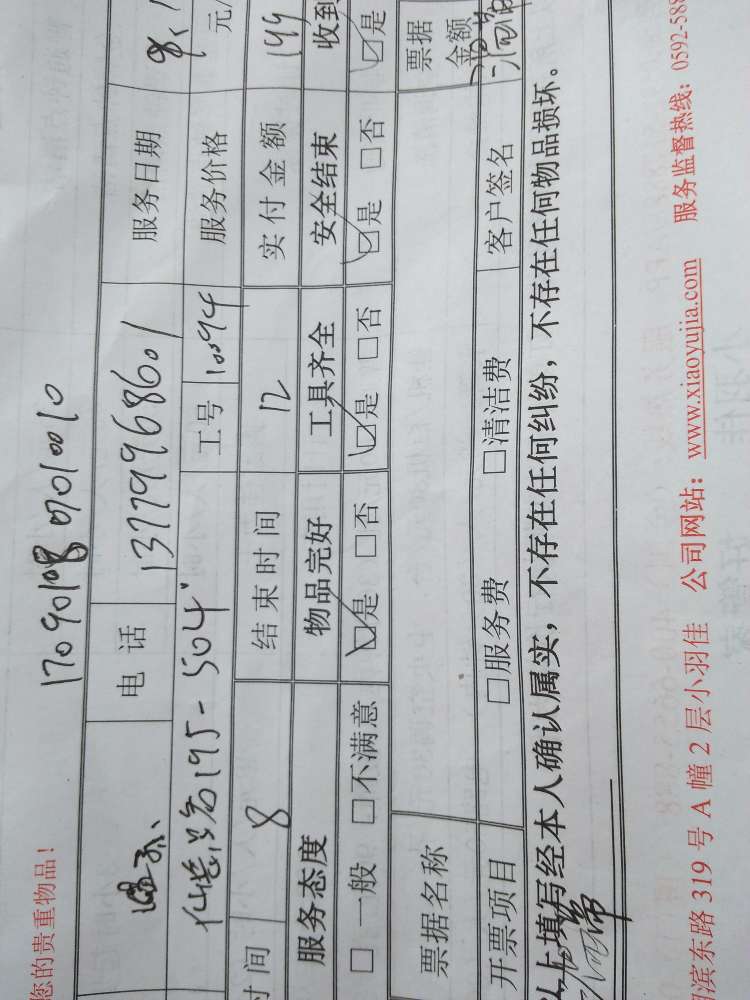 您的贵重物品！
电话 13779968601 服务日期
195-504 工号 10094 服务价格 元/
时间 8 结束时间 12 实付金额 199
服务态度 物品完好 工具齐全 安全结束 收到
□一般 □不满意 ☑是 □否 ☑是 □否 ☑是 □否 ☑是
票据名称 票据金额
开票项目 □服务费 □清洁费 客户签名
以上填写经本人确认属实，不存在任何纠纷，不存在任何物品损坏。
滨东路 319 号 A 幢 2 层小羽佳 公司网站：www.xiaoyujia.com 服务监督热线：0592-588